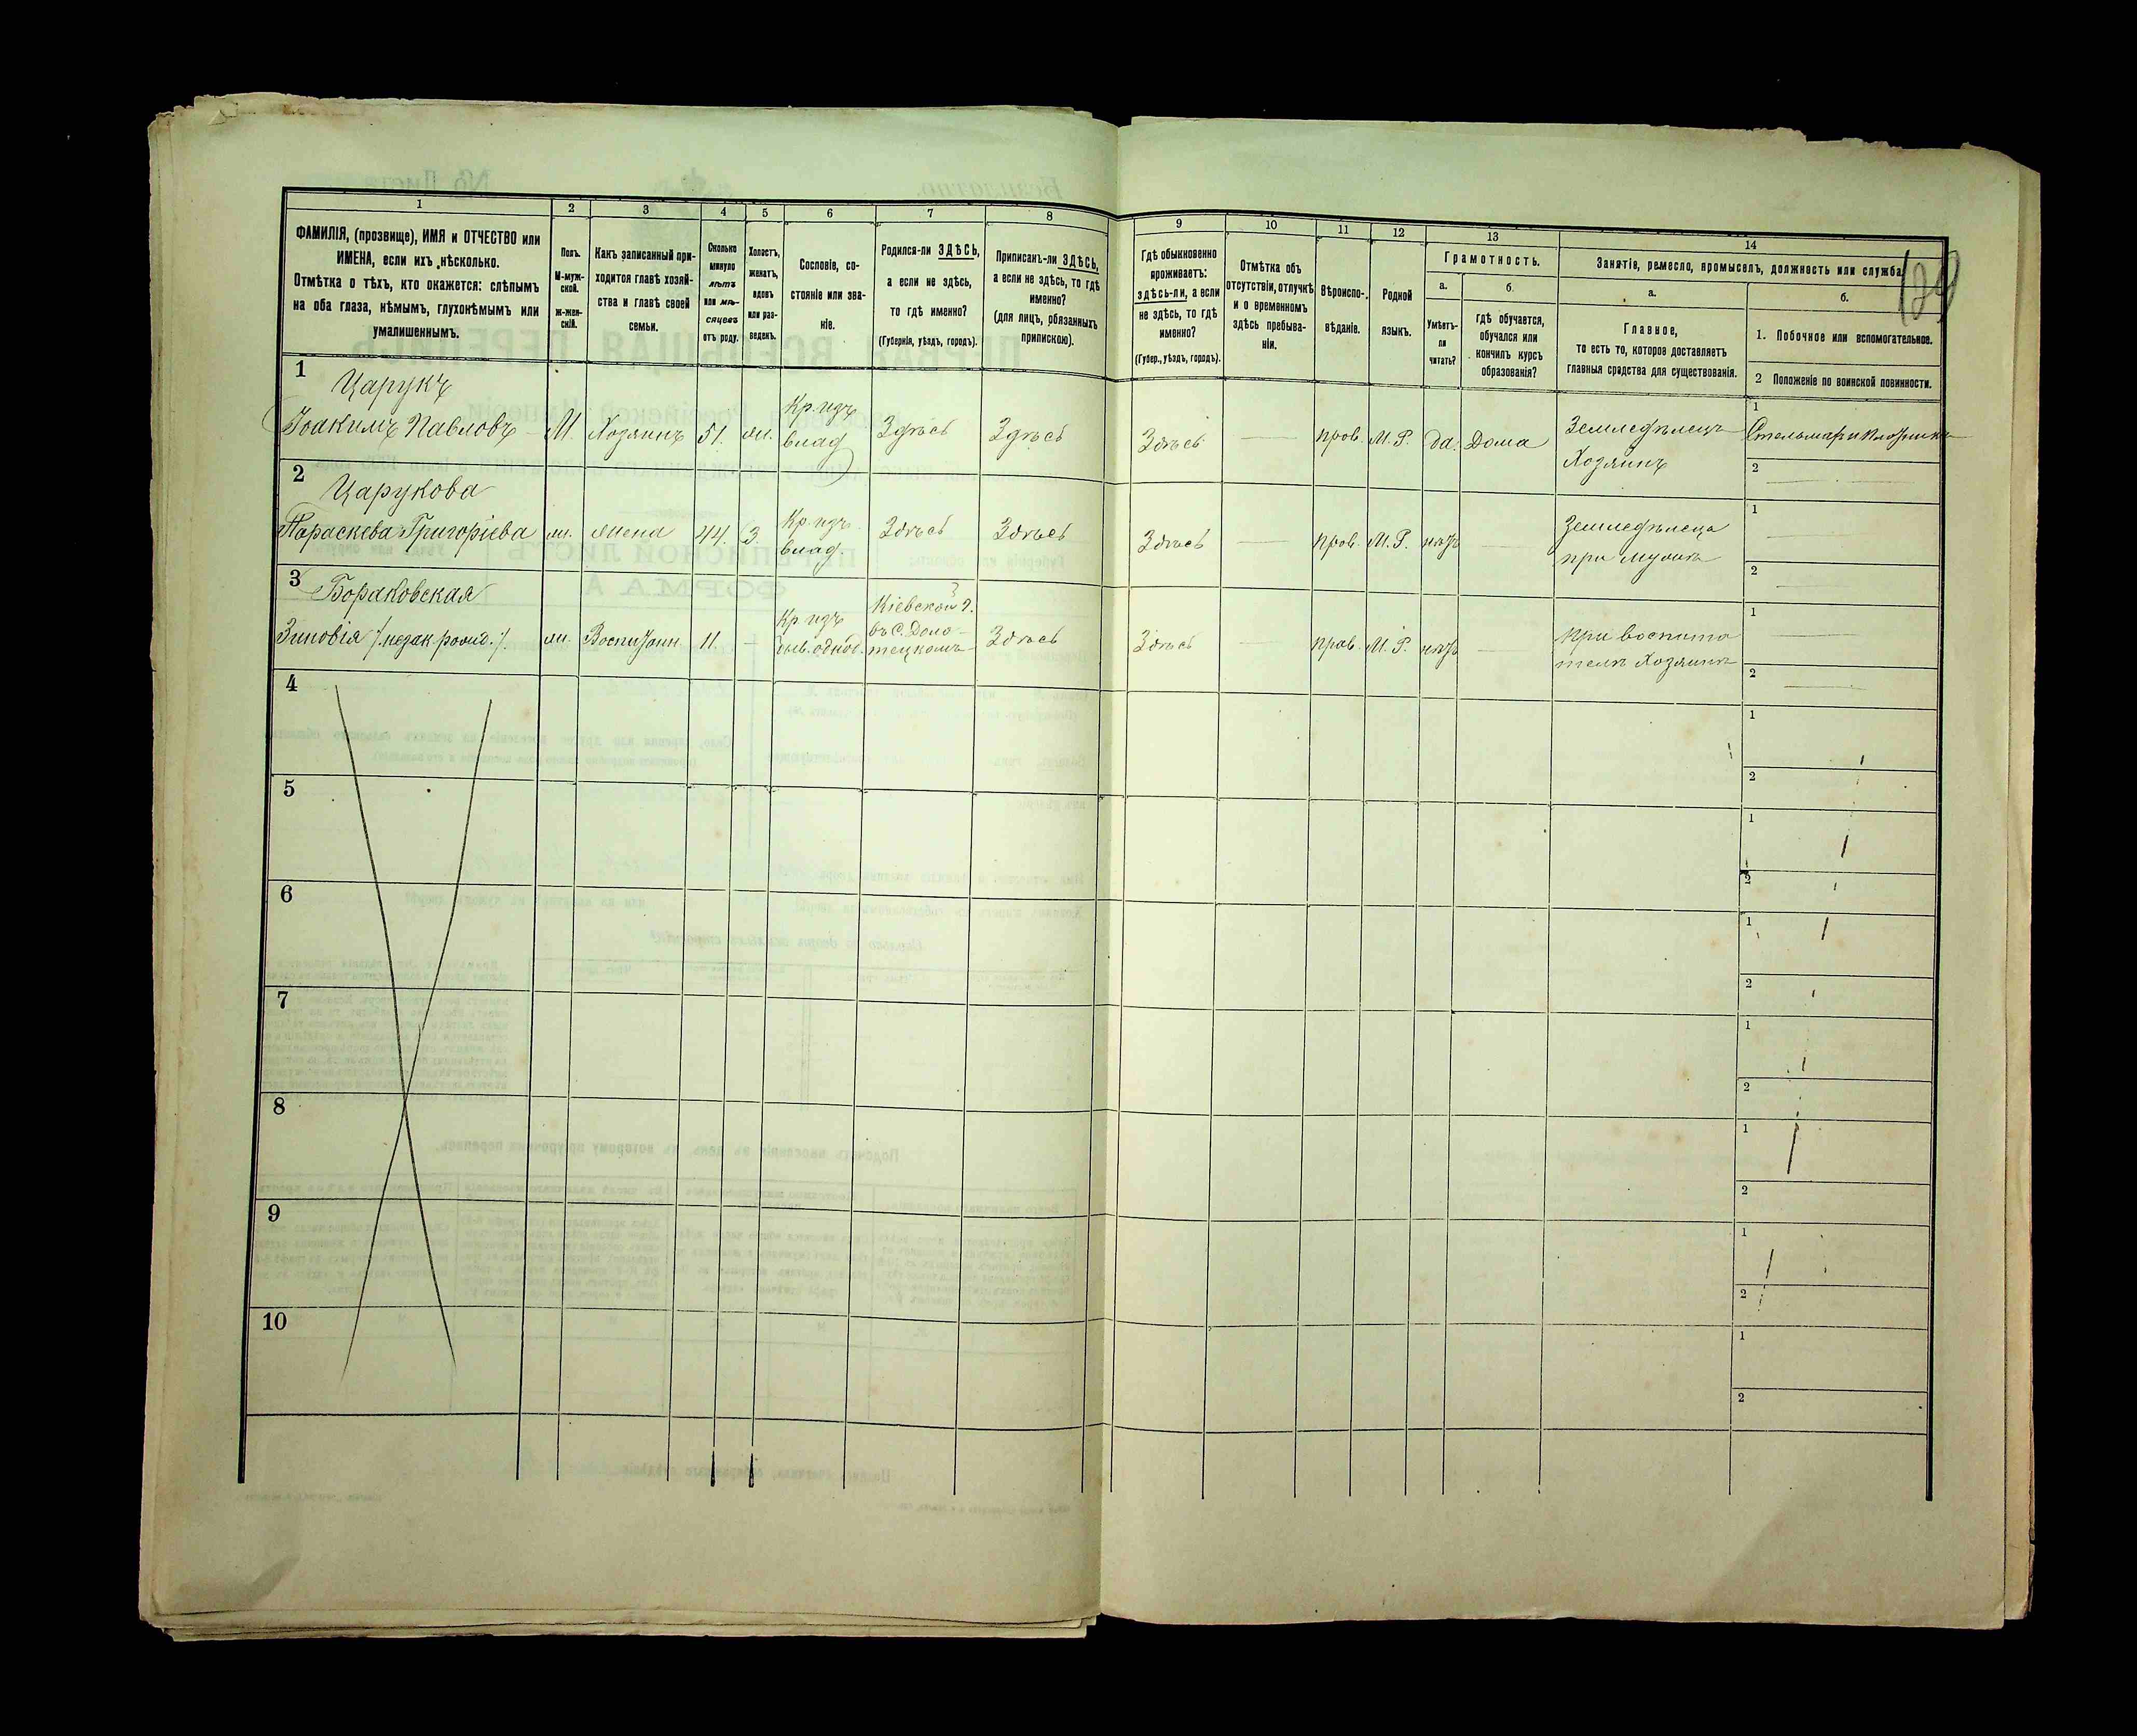 129
1 2 3 4 5 6 7 8 9 10 11 12 13 14
ФАМИЛІЯ, (прозвище), ИМЯ и ОТЧЕСТВО или
ИМЕНА, если ихъ нѣсколько.
Отмѣтка о тѣхъ, кто окажется: слѣпымъ
на оба глаза, нѣмымъ, глухонѣмымъ или
умалишеннымъ.
Полъ.
М-муж-
ской.
Ж-жен-
скій.
Какъ записанный при-
ходится главѣ хозяй-
ства и главѣ своей
семьи.
Сколько
минуло
лѣтъ
или мѣ-
сяцевъ
отъ роду.
Холостъ,
женатъ,
вдовъ
или раз-
веденъ.
Сословіе, со-
стояніе или зва-
ніе.
Родился-ли ЗДѢСЬ,
а если не здѣсь,
то гдѣ именно?
(Губернія, уѣздъ, городъ).
Приписанъ-ли ЗДѢСЬ,
а если не здѣсь, то гдѣ
именно?
(для лицъ, обязанныхъ
припискою).
Гдѣ обыкновенно
проживаетъ:
здѣсь-ли, а если
не здѣсь, то гдѣ
именно?
(Губер., уѣздъ, городъ).
Отмѣтка объ
отсутствіи, отлучкѣ
и о временномъ
здѣсь пребыва-
ніи.
Вѣроиспо-
вѣданіе.
Родной
языкъ.
Грамотность.
а.
Умѣетъ-
ли
читать?
б.
Гдѣ обучается,
обучался или
кончилъ курсъ
образованія?
Занятіе, ремесло, промыселъ, должность или служба.
а.
Главное,
то есть то, которое доставляетъ
главныя средства для существованія.
б.
1. Побочное или вспомогательное.
2 Положеніе по воинской повинности.
1
Царукъ
Іоакимъ Павловъ М. Хозяинъ 51. ж. Кр. изъ влад Здѣсь Здѣсь Здѣсь — прав. М. Р. да. Дома Земледѣлецъ Хозяинъ
1 Стельмах и плотникъ
2 —
2
Царукова
Параскева Григоріева ж. жена 44. З. Кр. изъ влад. Здѣсь Здѣсь Здѣсь — прав. М. Р. нѣтъ — Земледѣлеца при мужѣ
1
2 —
3
Бораковская
Зиновія /незак рожд./ ж. Воспитанн. 11. — Кр изъ быв. однод. Кіевской г. Здѣсь Здѣсь — прав. М. Р. нѣтъ — при воспита
телѣ Хозяинѣ
1 —
2 —
4
1
2
5
1
2
6
1
2
7
1
2
8
1
2
9
1
2
10
1
2